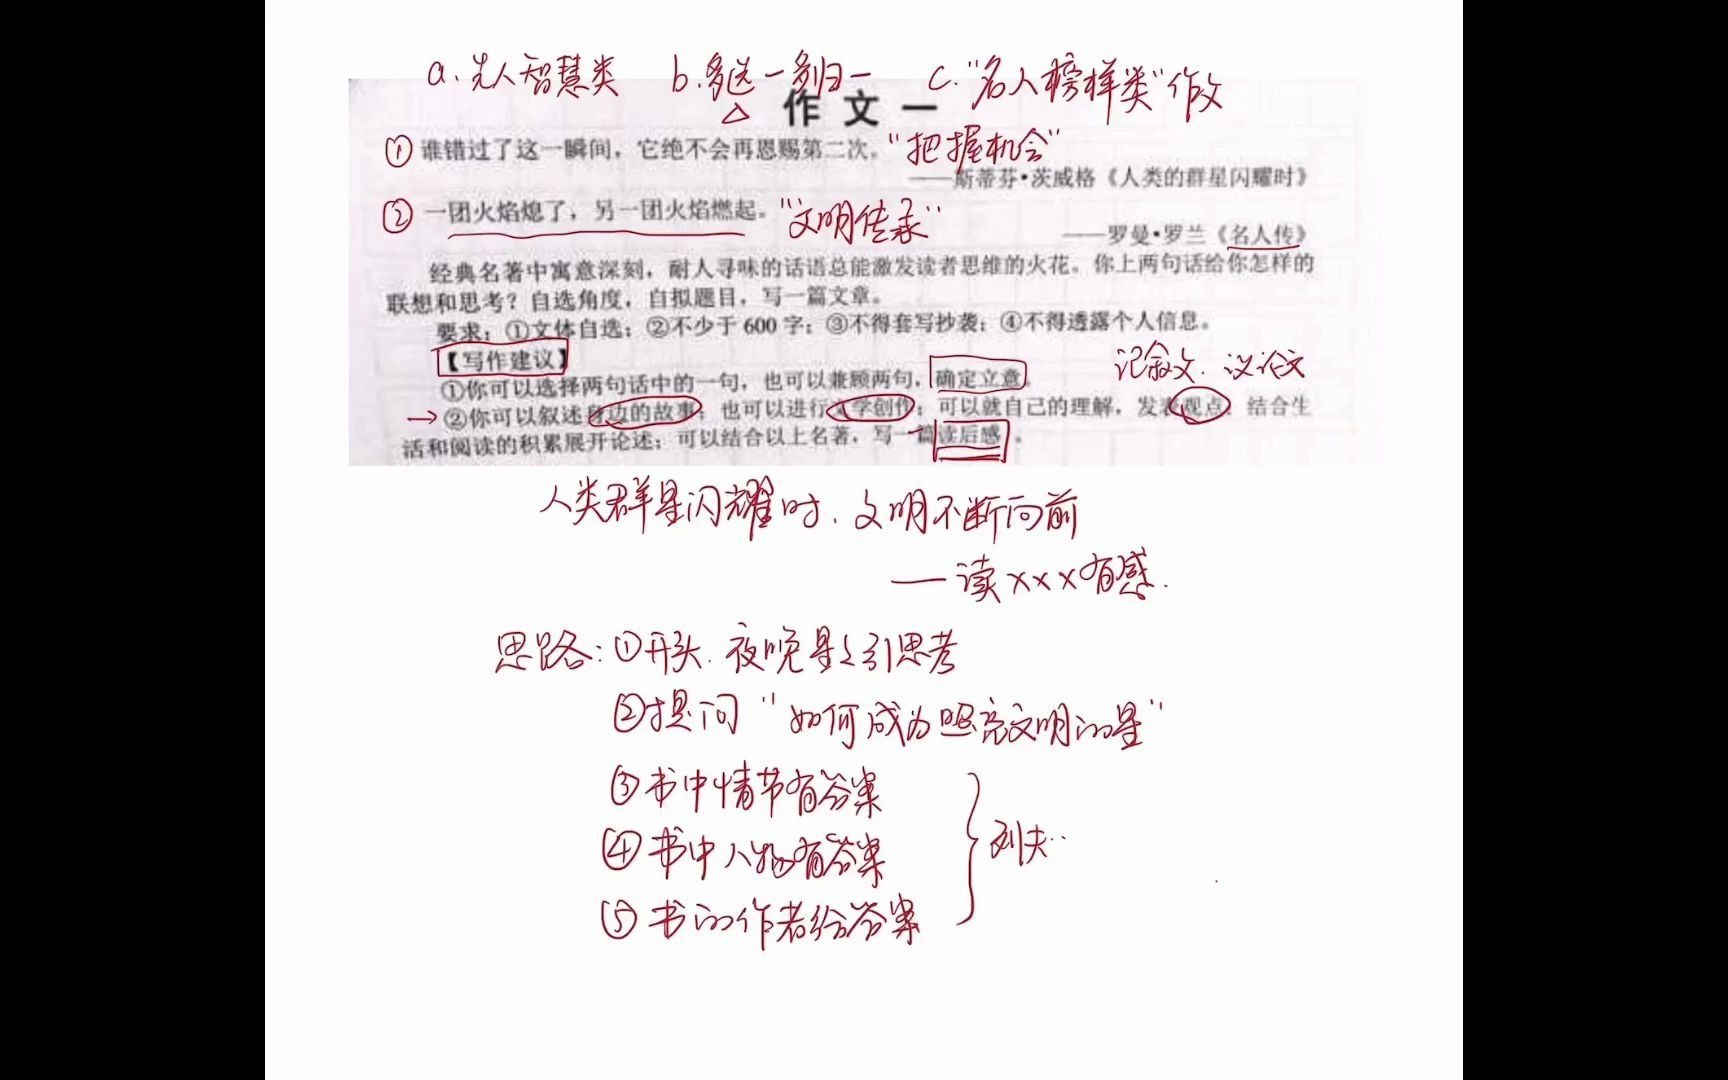 a.先人智慧类 b.多选一 多归一 c."名人榜样类"作文
作文一
①谁错过了这一瞬间，它绝不会再恩赐第二次。"把握机会"
——斯蒂芬•茨威格《人类的群星闪耀时》
②一团火焰熄了，另一团火焰燃起。"文明传承"
——罗曼•罗兰《名人传》
经典名著中寓意深刻，耐人寻味的话语总能激发读者思维的火花。你上两句话给你怎样的
联想和思考？自选角度，自拟题目，写一篇文章。
要求：①文体自选；②不少于600字；③不得套写抄袭；④不得透露个人信息。
【写作建议】 记叙文.议论文
①你可以选择两句话中的一句，也可以兼顾两句，确定立意。
→②你可以叙述身边的故事；也可以进行文学创作；可以就自己的理解，发表观点，结合生
活和阅读的积累展开论述；可以结合以上名著，写一篇读后感。
人类群星闪耀时.文明不断向前
—读×××有感.
思路:①开头.夜晚星引思考
②提问"如何成为照亮文明的星"
③书中情节有答案
④书中人物有答案 列夫··
⑤书的作者给答案